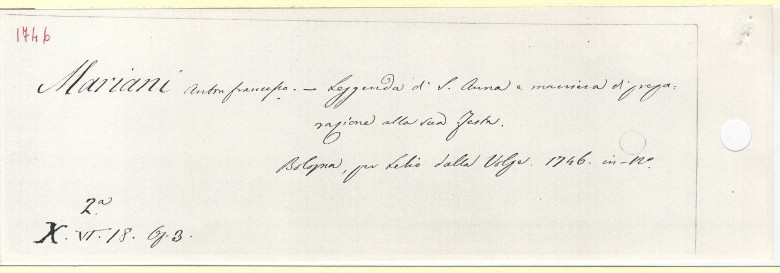 1746
Mariani Anton francesco. — Leggenda di S. Anna e maniera di prepa-
razione alla sua festa.
Bologna, per Lelio dalla Volpe. 1746. in-12º.
2ª
X. VI. 18. 3.